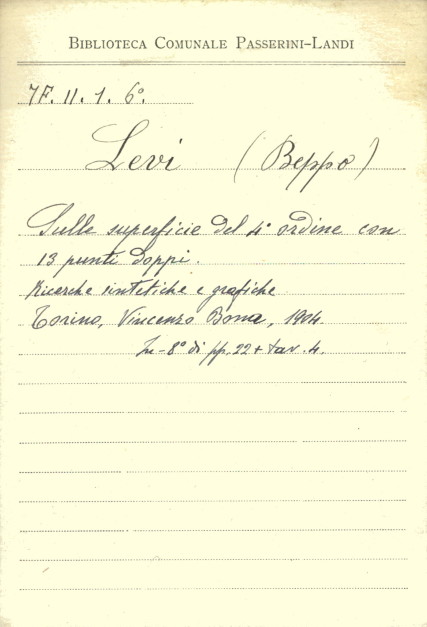 BIBLIOTECA COMUNALE PASSERINI-LANDI
7F. II. 1. 6º.
Levi (Beppo)
Sulle superficie del 4º ordine con
13 punti doppi.
Ricerche sintetiche e grafiche
Torino, Vincenzo Bona, 1904.
In-8º di pp. 22 + tav. 4.